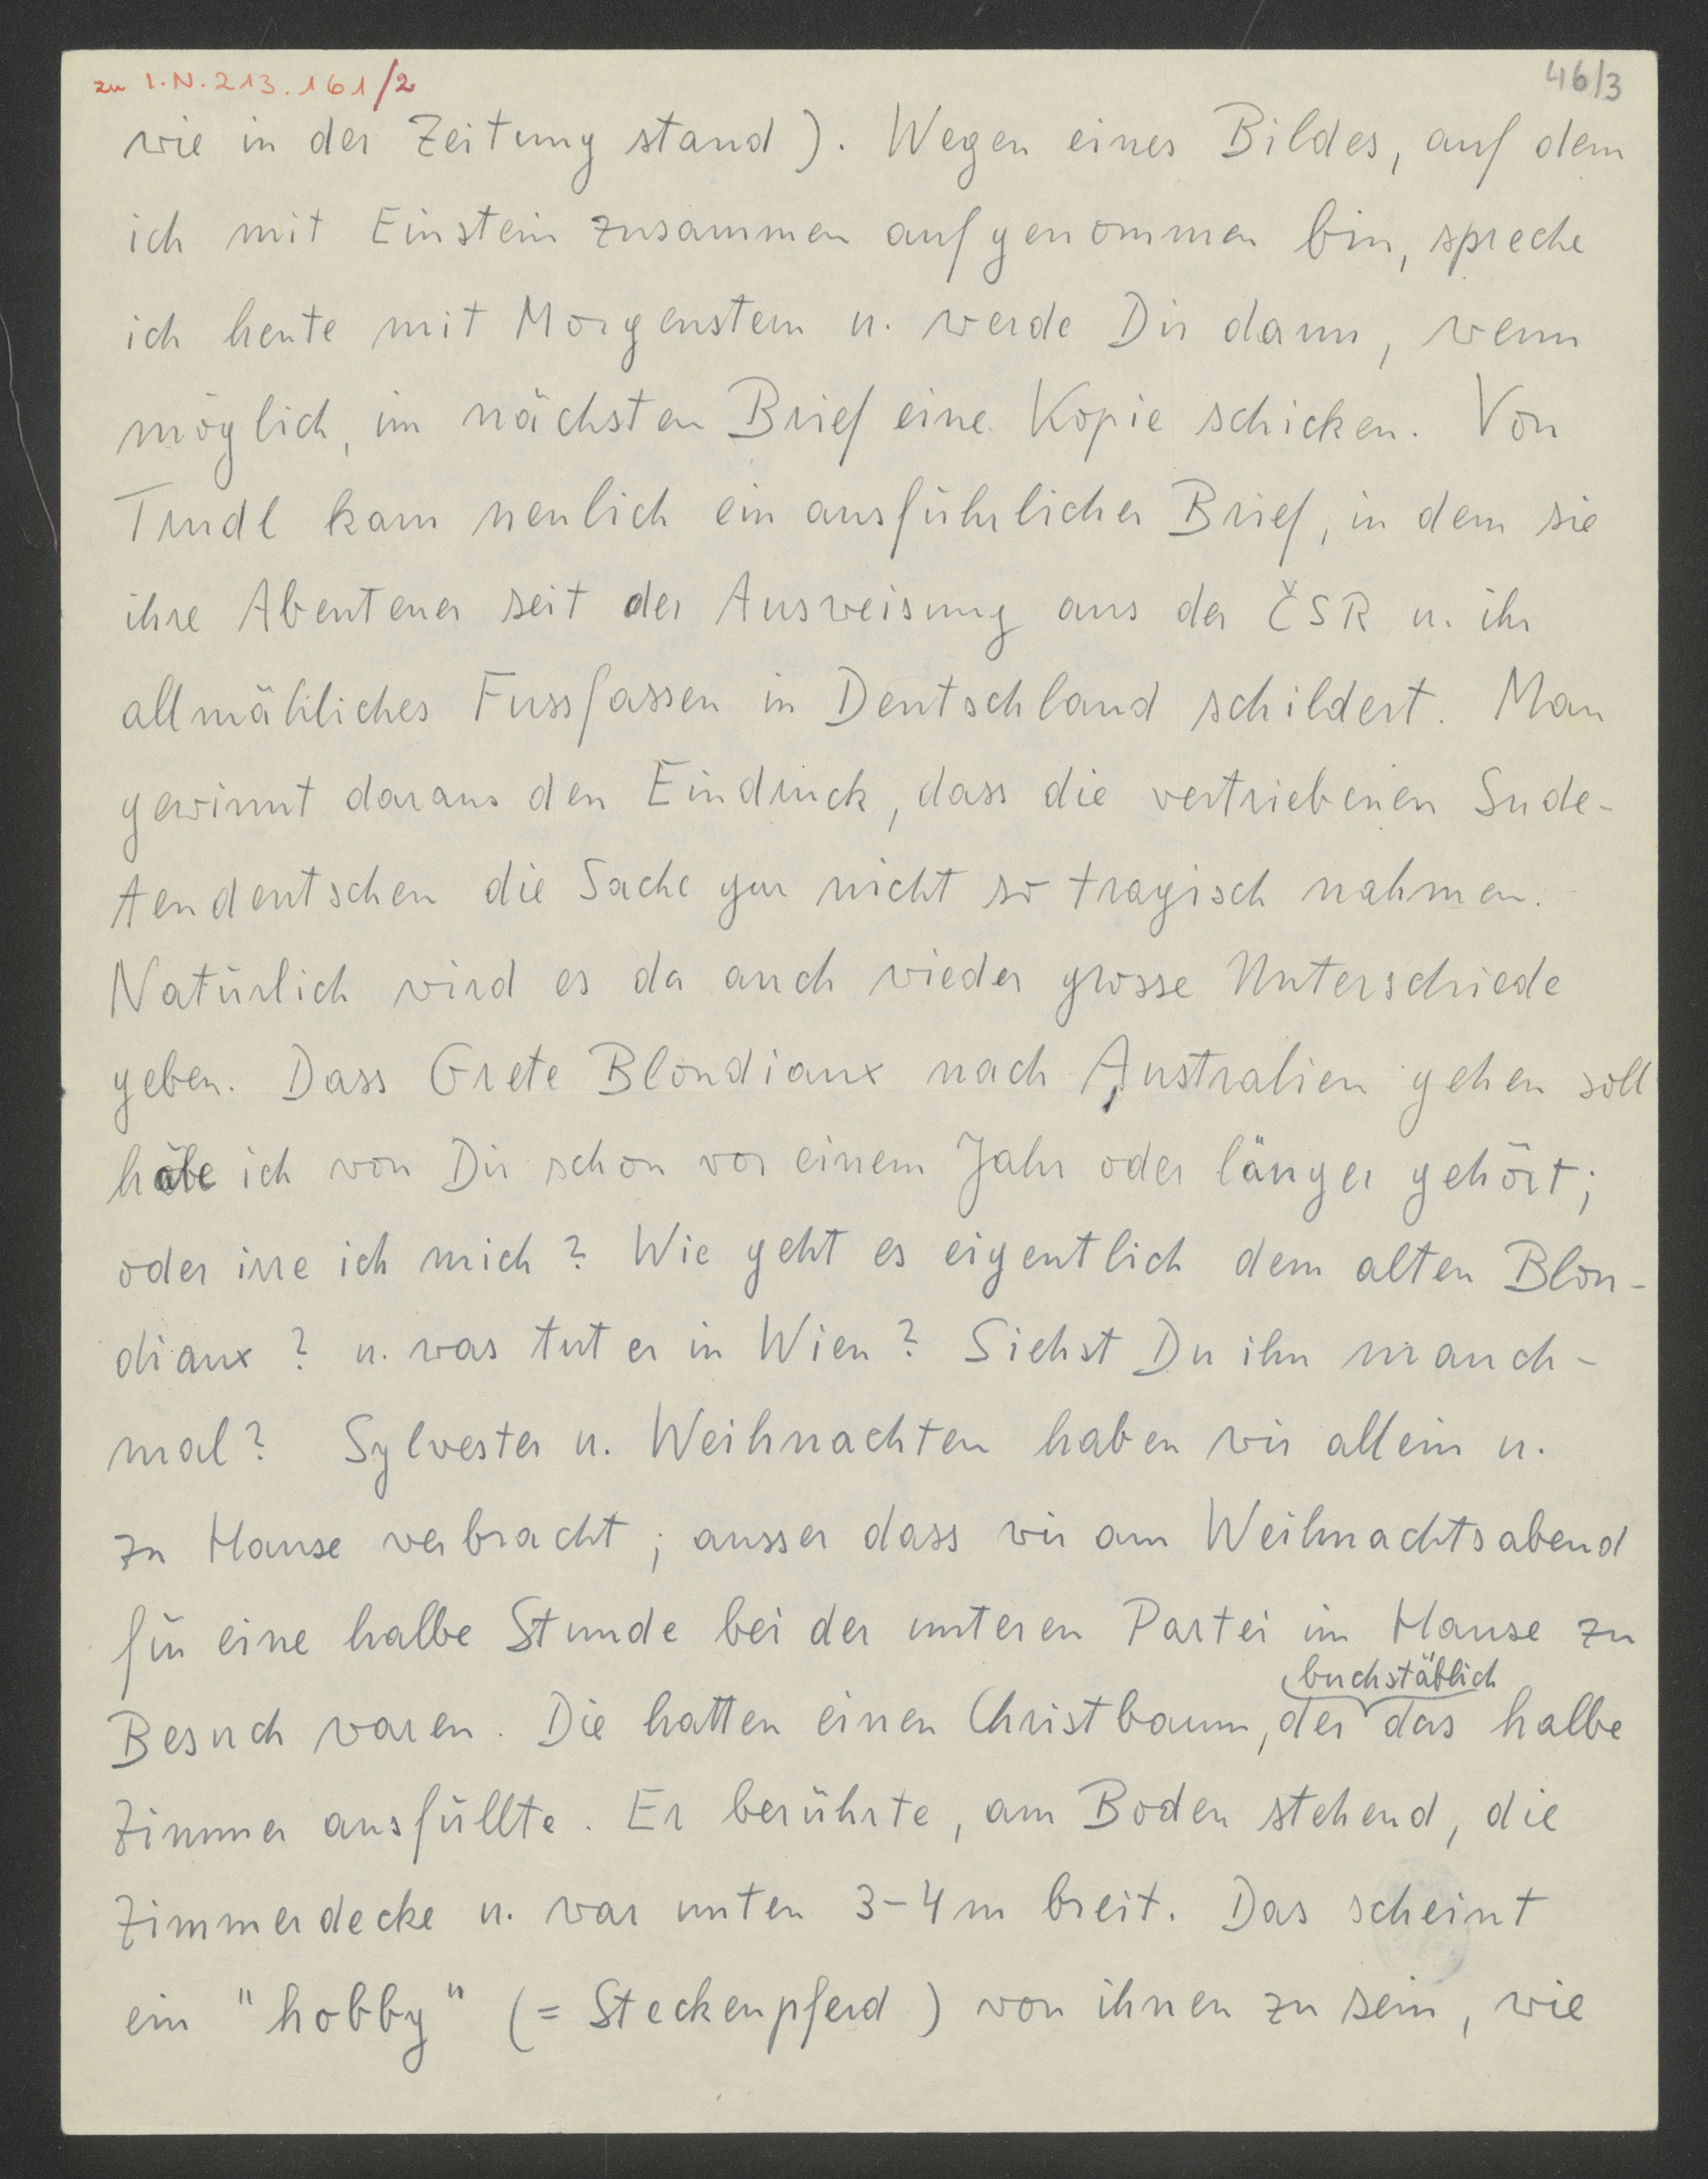 zu I.N. 213.161/2
46/3
wie in der Zeitung stand). Wegen eines Bildes, auf dem
ich mit Einstein zusammen aufgenommen bin, spreche
ich heute mit Morgenstern u. werde Dir dann, wenn
möglich, im nächsten Brief eine Kopie schicken. Von
Trudl kam neulich ein ausführlicher Brief, in dem sie
ihre Abenteuer seit der Ausweisung aus der ČSR u. ihr
allmähliches Fussfassen in Deutschland schildert. Man
gewinnt daraus den Eindruck, dass die vertriebenen Sude-
tendeutschen die Sache gar nicht so tragisch nahmen.
Natürlich wird es da auch wieder grosse Unterschiede
geben. Dass Grete Blondiaux nach Australien gehen soll
habe ich von Dir schon vor einem Jahr oder länger gehört;
oder irre ich mich? Wie geht es eigentlich dem alten Blon-
diaux? u. was tut er in Wien? Siehst Du ihn manch-
mal? Sylvester u. Weihnachten haben wir allein u.
zu Hause verbracht; ausser dass wir am Weihnachtsabend
für eine halbe Stunde bei der unteren Partei im Hause zu
buchstäblich
Besuch waren. Die hatten einen Christbaum, der das halbe
Zimmer ausfüllte. Er berührte, am Boden stehend, die
Zimmerdecke u. war unten 3-4 m breit. Das scheint
ein "hobby" (= Steckenpferd) von ihnen zu sein, wie